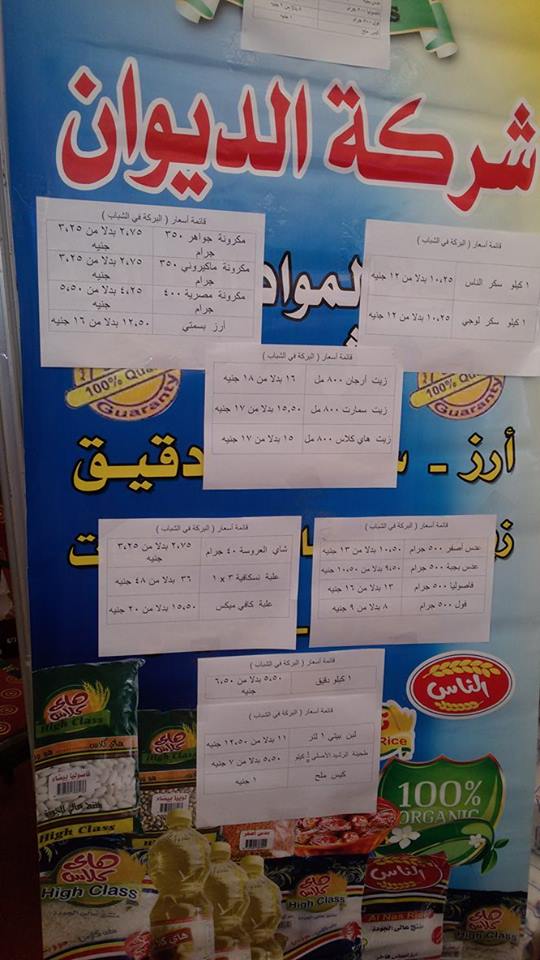 فول ٥٠٠ جرام
كيس ملح ١ جنيه
شركة الديوان
قائمة أسعار ( البركة في الشباب )
مكرونة جواهر ٣٥٠ جرام ٢,٧٥ بدلا من ٣,٢٥ جنيه
مكرونة ماكيروني ٣٥٠ جرام ٢,٧٥ بدلا من ٣,٢٥ جنيه
مكرونة مصرية ٤٠٠ جرام ٤,٢٥ بدلا من ٥,٥٠ جنيه
أرز بسمتي ١٢,٥٠ بدلا من ١٦ جنيه
قائمة أسعار ( البركة في الشباب )
١ كيلو سكر الناس ١٠,٢٥ بدلا من ١٢ جنيه
١ كيلو سكر لوجي ١٠,٢٥ بدلا من ١٢ جنيه
المواد
قائمة أسعار ( البركة في الشباب )
زيت أرجان ٨٠٠ مل ١٦ بدلا من ١٨ جنيه
زيت سمارت ٨٠٠ مل ١٥,٥٠ بدلا من ١٧ جنيه
زيت هاي كلاس ٨٠٠ مل ١٥ بدلا من ١٧ جنيه
100% Guaranty
100% Guaranty
أرز - دقيق
قائمة أسعار ( البركة في الشباب )
شاي العروسة ٤٠ جرام ٢,٧٥ بدلا من ٣,٢٥ جنيه
علبة نسكافية ٣ x ١ ٣٦ بدلا من ٤٨ جنيه
علبة كافي ميكس ١٥,٥٠ بدلا من ٢٠ جنيه
قائمة أسعار ( البركة في الشباب )
عدس أصفر ٥٠٠ جرام ١٠,٥٠ بدلا من ١٣ جنيه
عدس بجبة ٥٠٠ جرام ٩,٥٠ بدلا من ١٠,٥٠ جنيه
فاصوليا ٥٠٠ جرام ١٣ بدلا من ١٦ جنيه
فول ٥٠٠ جرام ٨ بدلا من ٩ جنيه
قائمة أسعار ( البركة في الشباب )
١ كيلو دقيق ٥,٥٠ بدلا من ٦,٥٠ جنيه
قائمة أسعار ( البركة في الشباب )
لبن بيتي ١ لتر ١١ بدلا من ١٢,٥٠ جنيه
طحينة الرشيد الأصلي كيلو ٥,٥٠ بدلا من ٧ جنيه
كيس ملح ١ جنيه
الناس
Rice
100%
ORGANIC
هاي كلاس
High Class
فاصوليا بيضاء
High Class
هاي كلاس
High Class
لوبيا بيضاء
هاي كلاس
High Class
هاي كلاس
High Class
الناس
Al Nas Rice
هاي كلاس
High Class